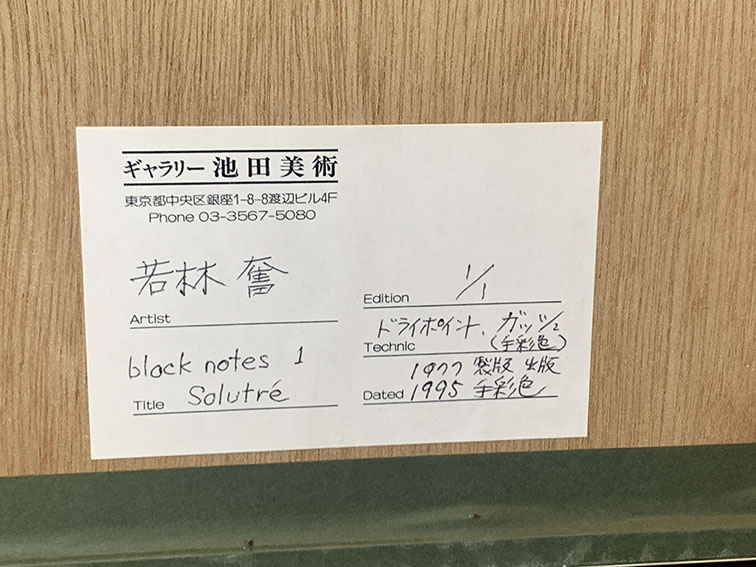 ギャラリー 池田美術
東京都中央区銀座1-8-8渡辺ビル4F
Phone 03-3567-5080
若林 奮
Artist
block notes 1
Title Solutré
1/1
Edition
ドライポイント、ガッシュ
Technic (手彩色)
1977 製版 出版
Dated 1995 手彩色